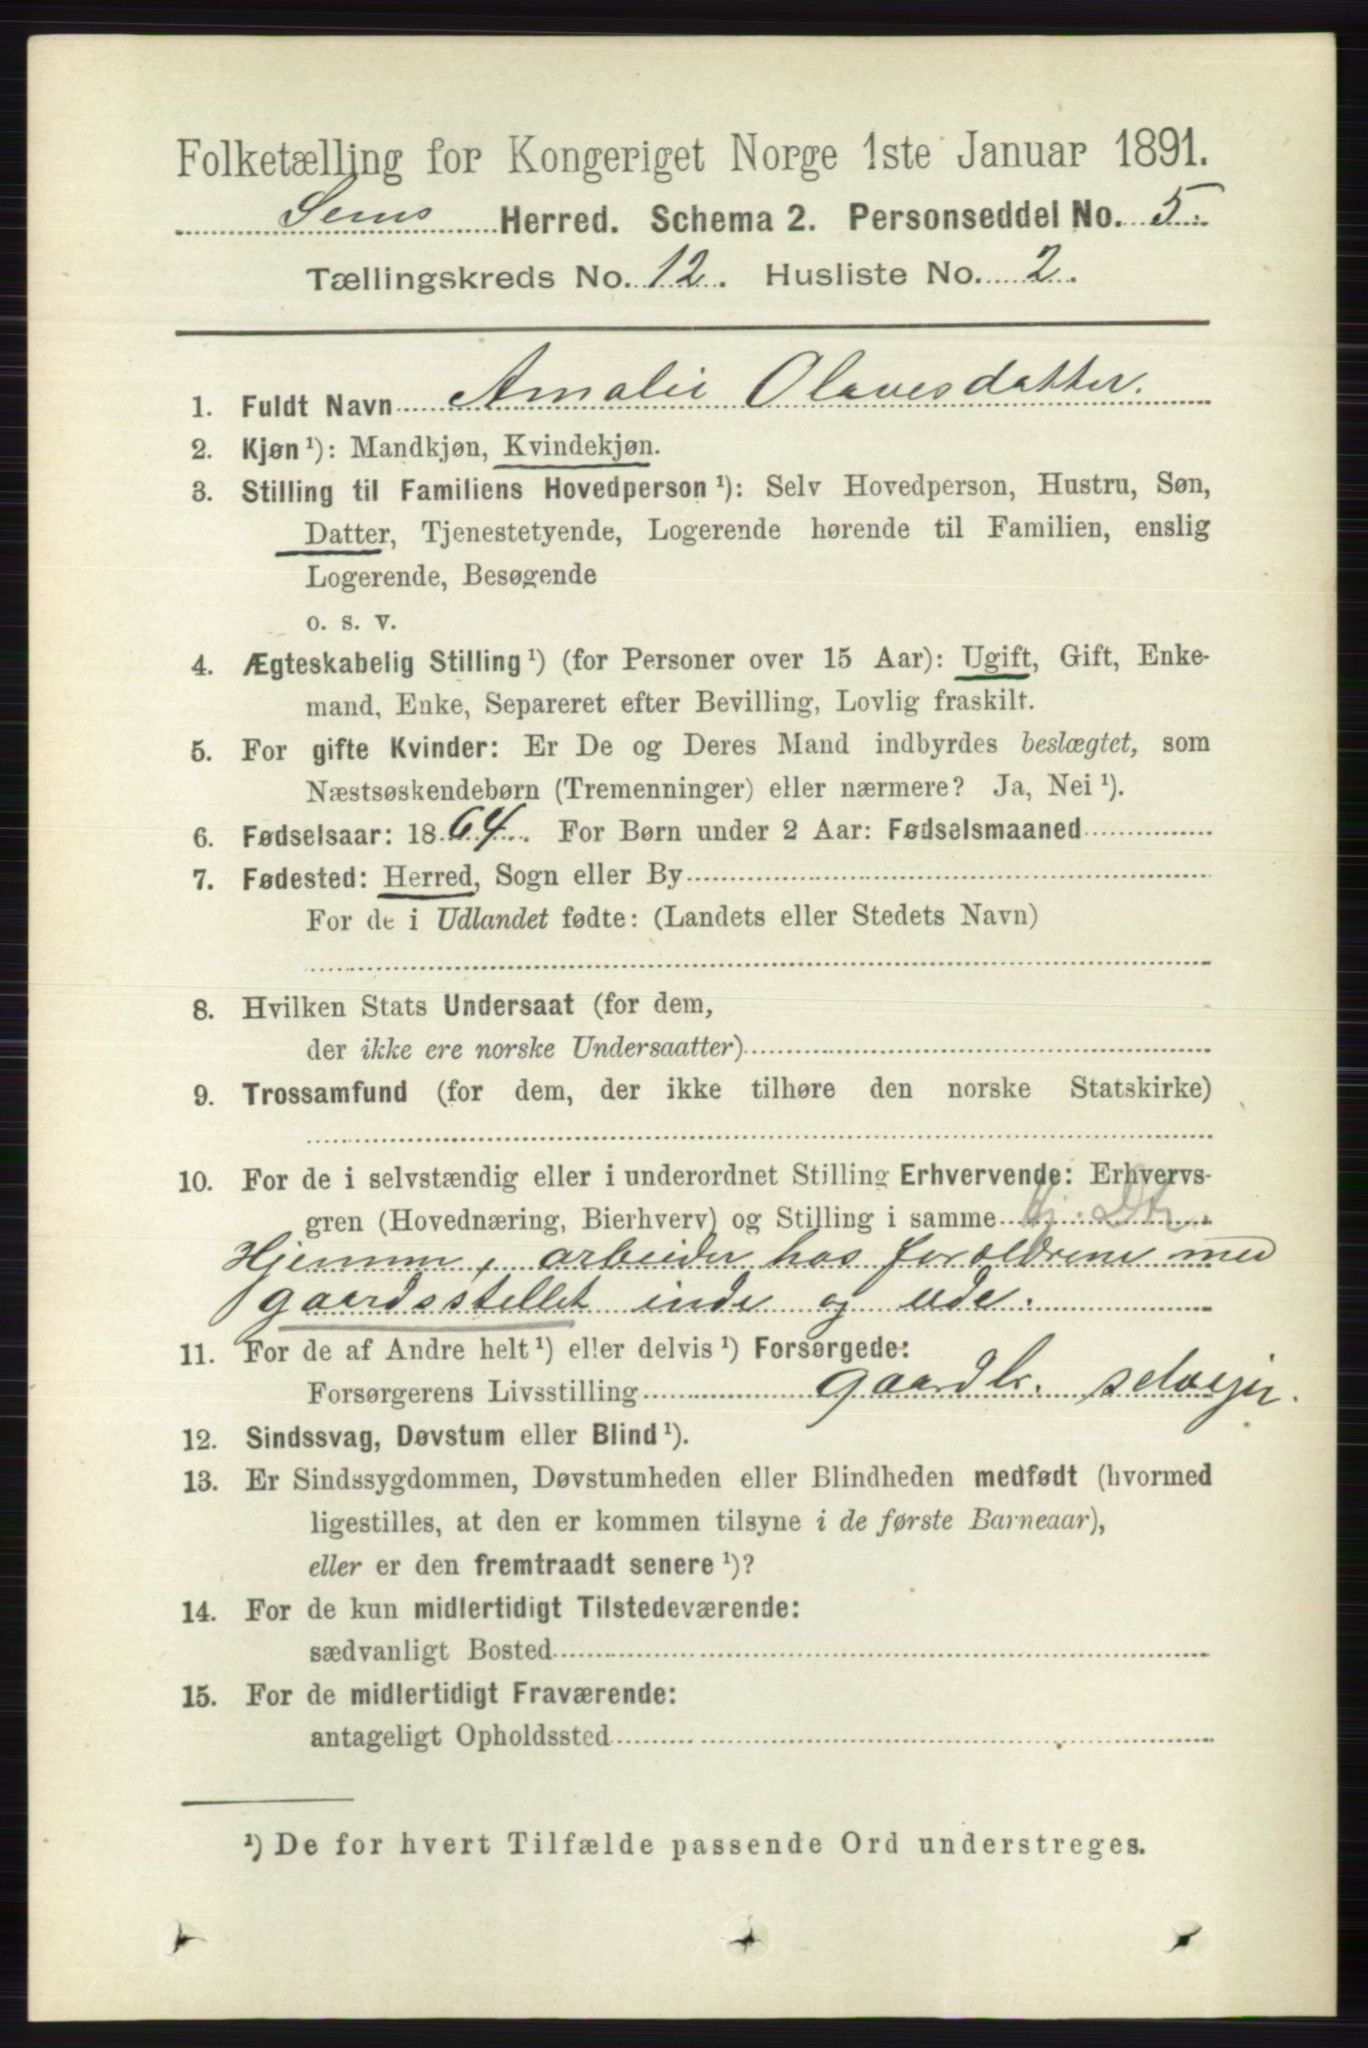 Folketælling for Kongeriget Norge 1ste Januar 1891.
Sems Herred. Schema 2. Personseddel No. 5.
Tællingskreds No. 12. Husliste No. 2.
1. Fuldt Navn Amalie Olavesdatter.
2. Kjøn ¹): Mandkjøn, Kvindekjøn.
3. Stilling til Familiens Hovedperson ¹): Selv Hovedperson, Hustru, Søn,
Datter, Tjenestetyende, Logerende hørende til Familien, enslig
Logerende, Besøgende
o. s. v.
4. Ægteskabelig Stilling ¹) (for Personer over 15 Aar): Ugift, Gift, Enke-
mand, Enke, Separeret efter Bevilling, Lovlig fraskilt.
5. For gifte Kvinder: Er De og Deres Mand indbyrdes beslægtet, som
Næstsøskendebørn (Tremenninger) eller nærmere? Ja, Nei ¹).
6. Fødselsaar: 1864. For Børn under 2 Aar: Fødselsmaaned
7. Fødested: Herred, Sogn eller By
For de i Udlandet fødte: (Landets eller Stedets Navn)
8. Hvilken Stats Undersaat (for dem,
der ikke ere norske Undersaatter)
9. Trossamfund (for dem, der ikke tilhøre den norske Statskirke)
10. For de i selvstændig eller i underordnet Stilling Erhvervende: Erhvervs-
gren (Hovednæring, Bierhverv) og Stilling i samme
Hjemme, arbeider hos forældrene med
gaardsstellet inde og ude.
11. For de af Andre helt ¹) eller delvis ¹) Forsørgede:
Forsørgerens Livsstilling gaardbr. selvejer.
12. Sindssvag, Døvstum eller Blind ¹).
13. Er Sindssygdommen, Døvstumheden eller Blindheden medfødt (hvormed
ligestilles, at den er kommen tilsyne i de første Barneaar),
eller er den fremtraadt senere ¹)?
14. For de kun midlertidigt Tilstedeværende:
sædvanligt Bosted
15. For de midlertidigt Fraværende:
antageligt Opholdssted
¹) De for hvert Tilfælde passende Ord understreges.